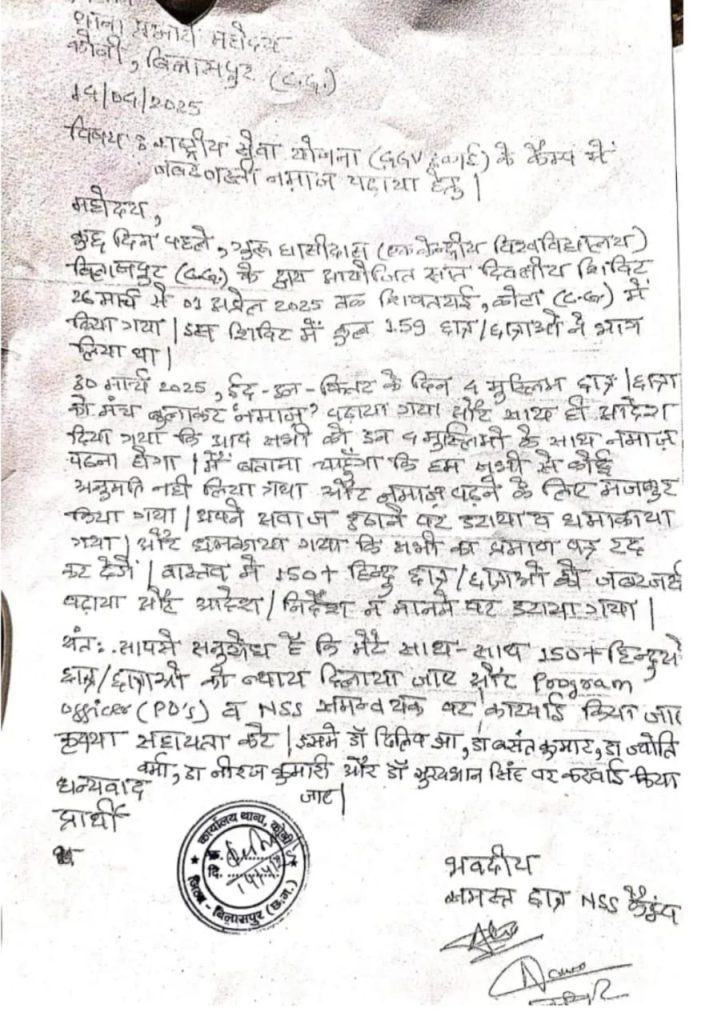 थाना प्रभारी महोदय
कोनी, बिलासपुर (C.G.)
14/04/2025
विषय :- राष्ट्रीय सेवा योजना (GGV इकाई) के कैम्प में
जबरदस्ती नमाज पढ़ाया हेतु।
महोदय,
कुछ दिन पहले, गुरू घासीदास (केन्द्रीय विश्वविद्यालय)
बिलासपुर (C.G.) के द्वारा आयोजित सात दिवसीय शिविर
26 मार्च से 01 अप्रेल 2025 तक शिवतराई, कोटा (C.G.) में
किया गया। इस शिविर में कुल 159 छात्र/छात्राओं ने भाग
लिया था।
30 मार्च 2025, ईद-उल-फितर के दिन 4 मुस्लिम छात्र/छात्रा
को मंच बुलाकर 'नमाज' पढ़ाया गया और साथ ही आदेश
दिया गया कि आप सभी को इन 4 मुस्लिमों के साथ नमाज
पढ़ना होगा। मैं बताना चाहूँगा कि हम सभी से कोई
अनुमति नहीं लिया गया और नमाज पढ़ने के लिए मजबुर
किया गया। अपने आवाज उठाने पर डराया व धमकाया
गया। और धमकाया गया कि सभी का प्रमाण पत्र रद्द
कर देंगे। वास्तव में 150+ हिन्दु छात्र/छात्राओं को
पढ़ाया और आदेश/निर्देश न मानने पर डराया गया।
अंत:. आपसे अनुरोध है कि मेरे साथ-साथ 150+ हिन्दुओ
छात्र/छात्राओं को न्याय दिलाया जाए और Program
officer (PO's) व NSS समन्वयक पर कारवाई किया जाए
कृपया सहायता करे। इसमे डॉ दिलिप झा, डॉ बसंत कुमार, डॉ ज्योति
वर्मा, डॉ नीरज कुमारी और डॉ सूर्यभान सिंह पर करवाई किया
जाए।
धन्यवाद
प्रार्थी
कार्यालय थाना, कोनी
क्र.
दि. 14/4/25
जिला - बिलासपुर (छ.ग.)
भवदीय
समस्त छात्र NSS